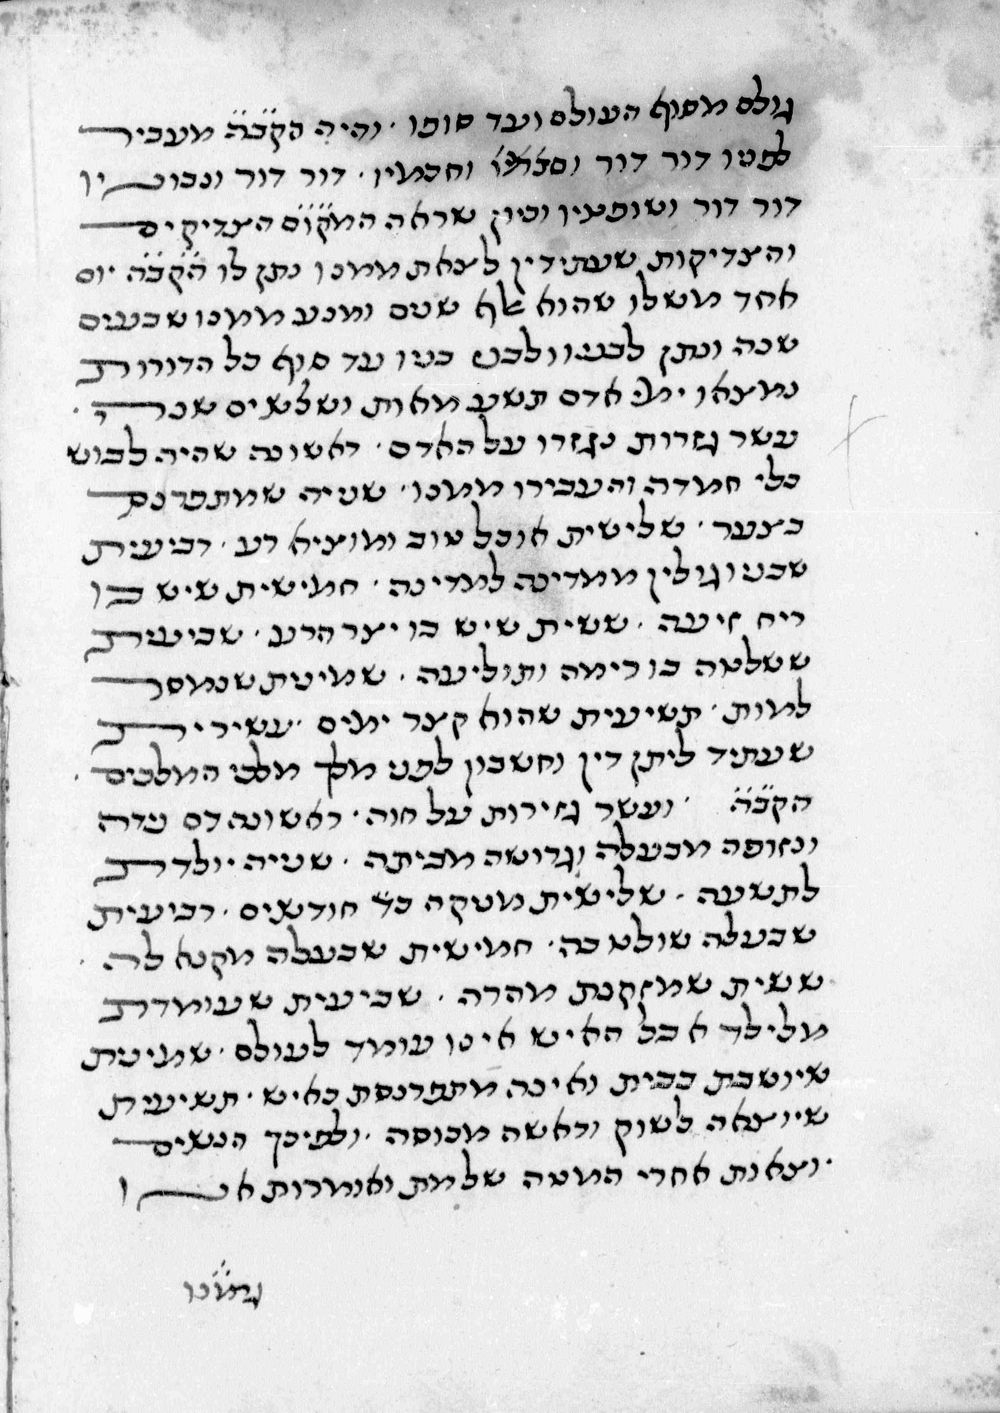 גולם מסוף העולם ועד סופו · והיה הקב̈ה̈ מעביר
לפניו דור דור וספריו וחכמיו · דור דור ונבוניו
דור דור ושופטיו וכיון שראה המקום הצדיקים
והצדיקות שעתידין לצאת ממנו נתן לו הקב̈ה̈ יום
אחד משלו שהוא אלף שנים ומנע ממנו שבעים
שנה ונתן לבניו ולבני בניו עד סוף כל הדורות
נמצאו ימי אדם תשע מאות ושלשים שנה ·
עשר גזרות נגזרו על האדם · ראשונה שהיה לבוש
כלי חמדה והעבירו ממנו · שנייה שמתפרנס
בצער · שלישית אוכל טוב ומוציא רע · רביעית
שבניו גולין ממדינה למדינה · חמישית שיש בו
ריח זיעה · ששית שיש בו יצר הרע · שביעית
ששלטה בו רימה ותוליעה · שמינית שנמסר
למות · תשיעית שהוא קצר ימים · עשירית
שעתיד ליתן דין וחשבון לפני מלך מלכי המלכים ·
הקב̈ה̈ · ועשר גזירות על חוה · ראשונה דם נדה
ונזופה מבעלה וגרושה מביתה · שנייה יולדת
לתשעה · שלישית מניקה כד̈ חודשים · רביעית
שבעלה שולט בה · חמישית שבעלה מקנא לה ·
ששית שמזקנת מהרה · שביעית שעומדת
מלילד אבל האיש אינו עומד לעולם · שמינית
שיושבת בבית ואינה מתפרנסת כאיש · תשיעית
שיוצאה לשוק וראשה מכוסה · ולפיכך הנשים
יוצאות אחרי המטה של מת ואומרות אנו
גרמנו